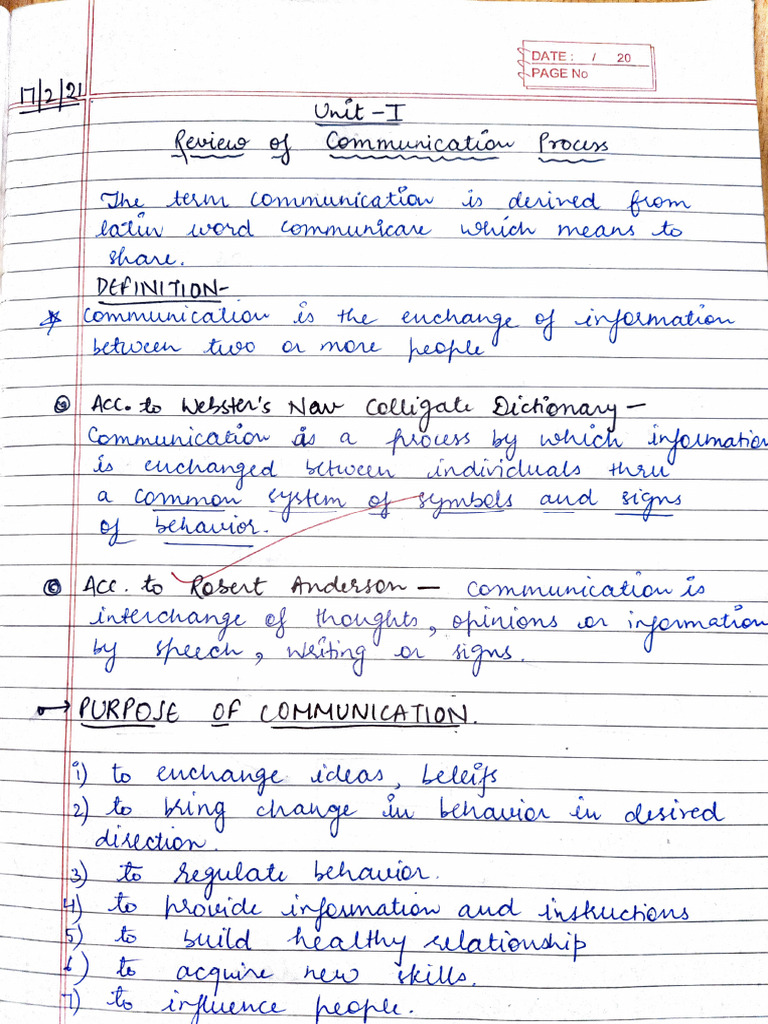 DATE : / 20
PAGE No
17/2/21
Unit - I
Review of Communication Process
The term communication is derived from
latin word communicare which means to
share.
DEFINITION-
* Communication is the enchange of information
between two or more people
Acc. to Webster's New Colligate Dictionary -
Communication is a process by which information
is enchanged between individuals thru
a common system of symbols and signs
of behavior.
Acc. to Robert Anderson - communication is
interchange of thoughts, opinions or information
by speech, writing or signs.
→ PURPOSE OF COMMUNICATION.
1) to enchange ideas, beleifs
2) to bring change in behavior in desired
direction.
3) to regulate behavior.
4) to provide information and instructions
5) to build healthy relationship
6) to acquire new skills.
7) to influence people.